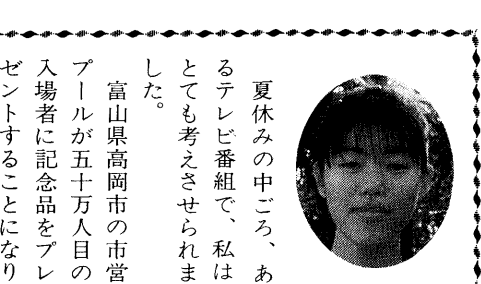 夏休みの中ごろ、あ
るテレビ番組で、私は
とても考えさせられま
した。
富山県高岡市の市営
プールが五十万人目の
入場者に記念品をプレ
ゼントすることになり